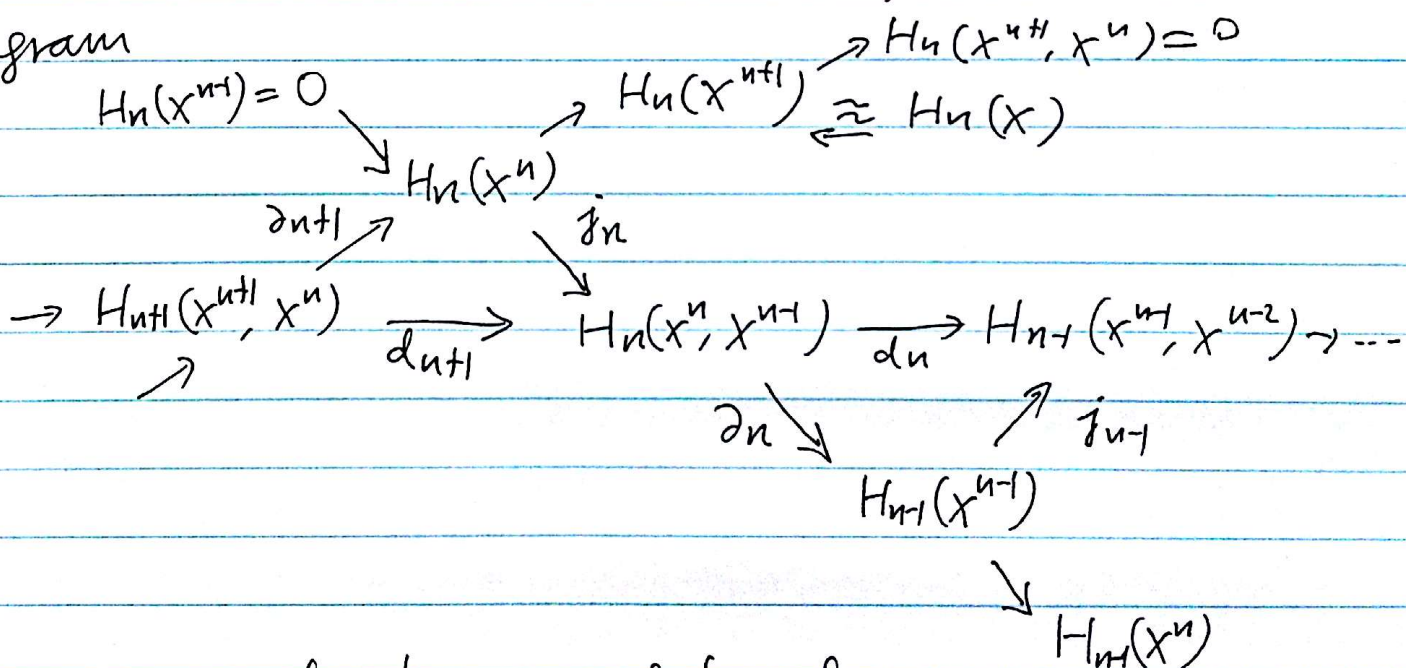 gram
→ Hₙ(Xⁿ⁺¹, Xⁿ) = 0
Hₙ(Xⁿ⁻¹) = 0 ↘ ↗ Hₙ(Xⁿ⁺¹) ≅ Hₙ(X)
Hₙ(Xⁿ)
∂ₙ₊₁ ↗ ↘ jₙ
→ Hₙ₊₁(Xⁿ⁺¹, Xⁿ) → dₙ₊₁ Hₙ(Xⁿ, Xⁿ⁻¹) → dₙ Hₙ₋₁(Xⁿ⁻¹, Xⁿ⁻²) → ...
↗ ∂ₙ ↘ ↗ jₙ₋₁
Hₙ₋₁(Xⁿ⁻¹)
↘
Hₙ₋₁(Xⁿ)